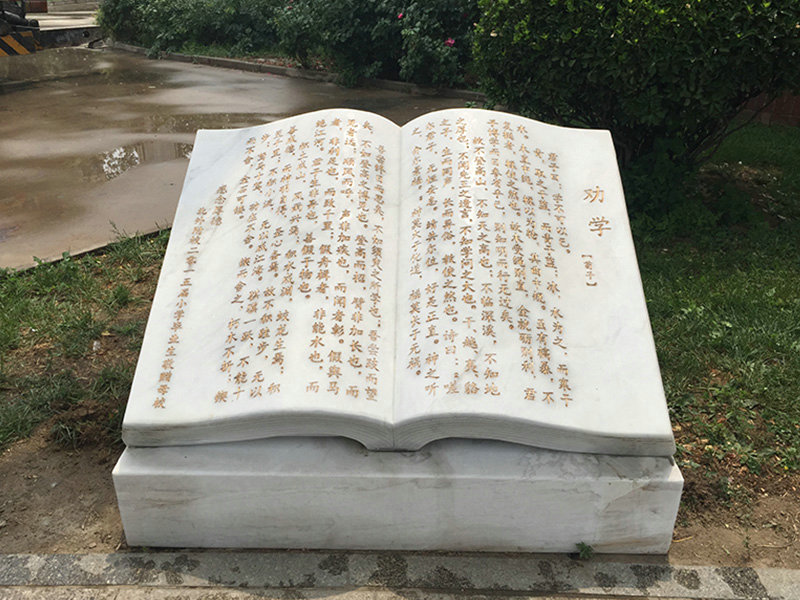 劝学
【荀子】
君子曰：学不可以已。
青，取之于蓝，而青于蓝；冰，水为之，而寒于
水。木直中绳，輮以为轮，其曲中规。虽有槁暴，不
复挺者，輮使之然也。故木受绳则直，金就砺则利，君
子博学而日参省乎己，则知明而行无过矣。
故不登高山，不知天之高也；不临深溪，不知地
之厚也；不闻先王之遗言，不知学问之大也。干、越、夷、貉
之子，生而同声，长而异俗，教使之然也。诗曰：“嗟
尔君子，无恒安息。靖共尔位，好是正直。神之听
之，介尔景福。”神莫大于化道，福莫长于无祸。
吾尝终日而思矣，不如须臾之所学也。吾尝跂而望
矣，不如登高之博见也。登高而招，臂非加长也，而
见者远；顺风而呼，声非加疾也，而闻者彰。假舆马
者，非利足也，而致千里；假舟楫者，非能水也，而
绝江河。君子生非异也，善假于物也。
积土成山，风雨兴焉；积水成渊，蛟龙生焉；积
善成德，而神明自得，圣心备焉。故不积跬步，无以
至千里；不积小流，无以成江海。骐骥一跃，不能十
步；驽马十驾，功在不舍。锲而舍之，朽木不折；锲
而不舍，金石可镂。
感念母校
一三届小学毕业生敬赠母校